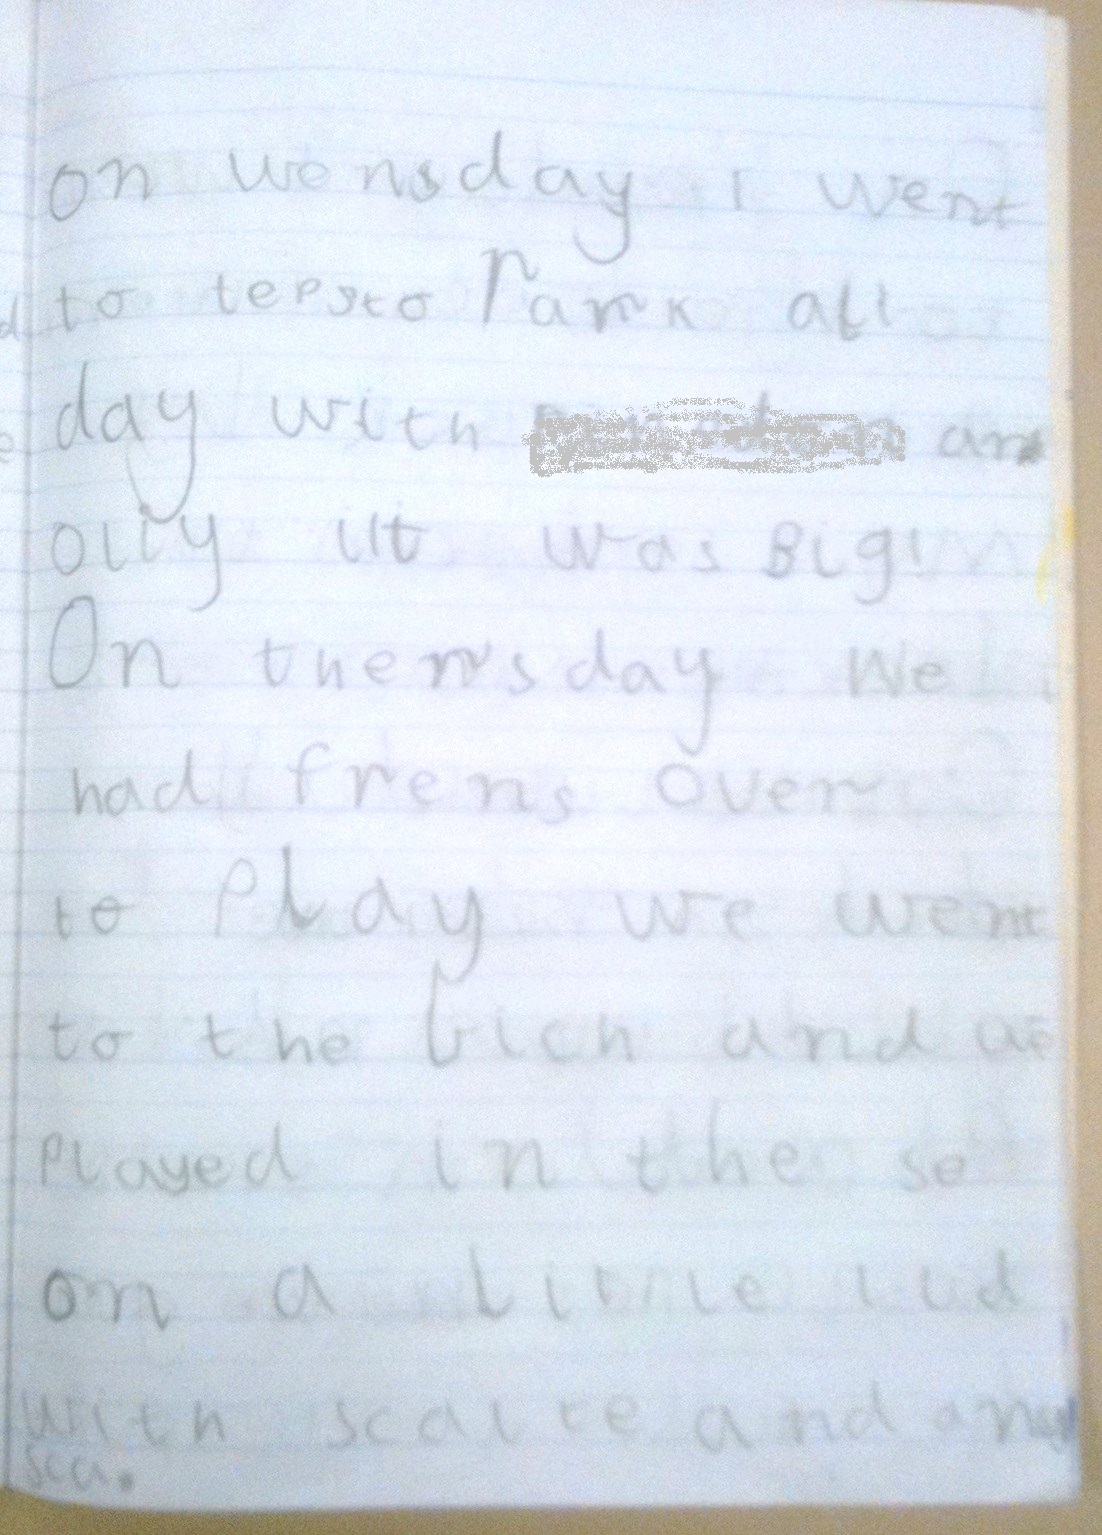 on wensday I went
to tepsto Park all
day with and
olly iit was Big!
On thersday we
had frens over
to play we went
to the bich and
played in the se
on a little
with and